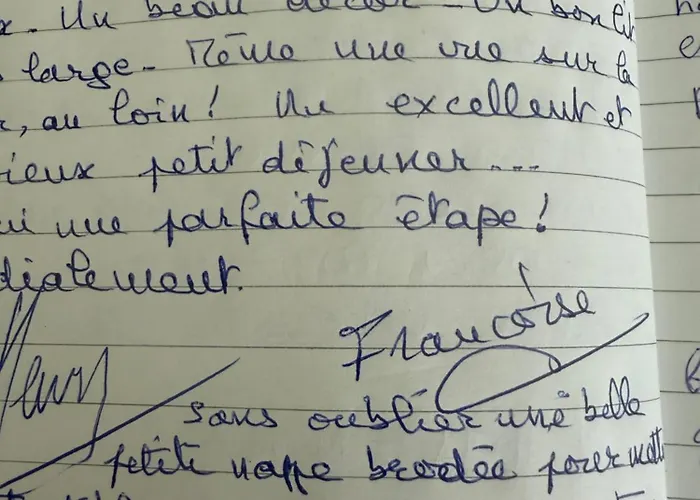 x. Un beau décor - Un bon lit
large. Même une vue sur la
r, au loin! Un excellent et
ieux petit déjeuner...
ui une parfaite étape!
dialement.
Françoise
Henry
sans oublier une belle
petite nappe brodée pour mett